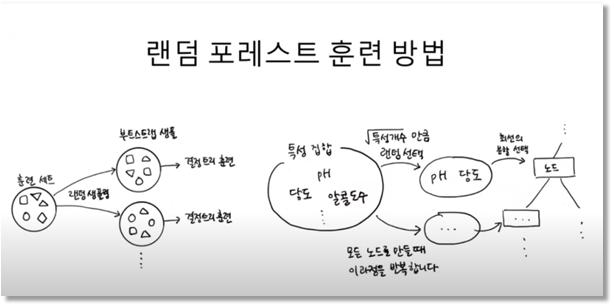 랜덤 포레스트 훈련 방법
훈련 세트
랜덤 샘플링
부트스트랩 샘플
결정트리 훈련
결정트리 훈련
특성 집합
pH
당도 알콜도수
√특성개수 만큼
랜덤 선택
pH 당도
최선의
분할 선택
노드
모든 노드를 만들 때
이 과정을 반복합니다